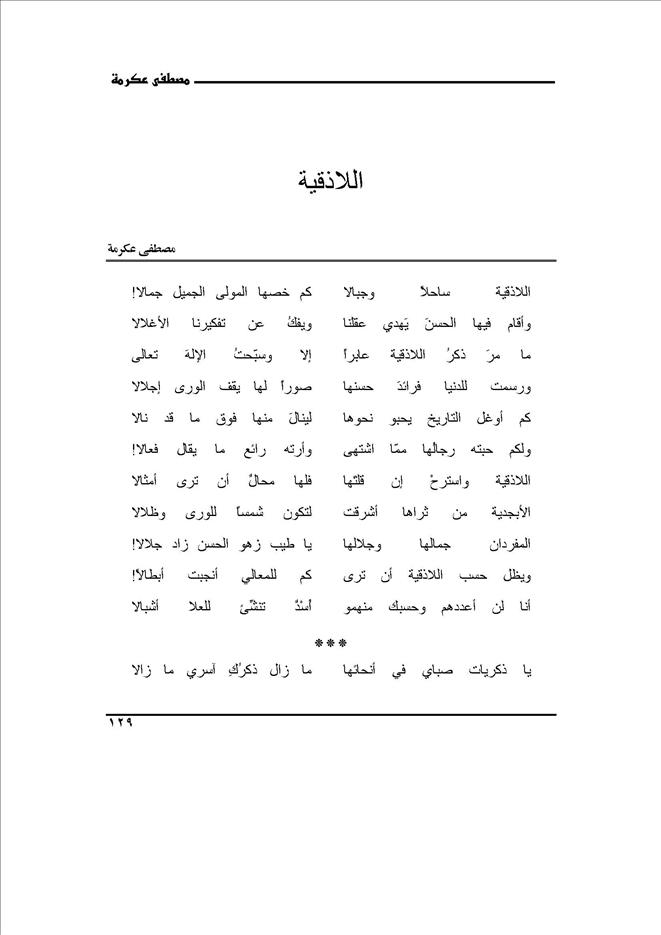 مصطفى عكرمة
اللاذقية
مصطفى عكرمة
اللاذقية ساحلاً وجبالا كم خصها المولى الجميل جمالا!
وأقام فيها الحسنَ يَهدي عقلنا ويفكُ عن تفكيرنا الأغلالا
ما مرَ ذكرُ اللاذقية عابراً إلا وسبّحتُ الإلهَ تعالى
ورسمت للدنيا فرائدَ حسنها صوراً لها يقف الورى إجلالا
كم أوغل التاريخ يحبو نحوها لينالَ منها فوق ما قد نالا
ولكم حبته رجالُها ممّا اشتهى وأرته رائع ما يقال فعالا!
اللاذقية واسترحْ إن قلتَها فلها محالٌ أن ترى أمثالا
الأبجدية من ثراها أشرقت لتكون شمساً للورى وظلالا
المفردان جمالها وجلالها يا طيب زهو الحسن زاد جلالا!
ويظل حسب اللاذقية أن ترى كم للمعالي أنجبت أبطالاً!
أنا لن أعددهم وحسبك منهمو أُسْدٌ تنشّئ للعلا أشبالا
***
يا ذكريات صباي في أنحائها ما زال ذكرُكِ آسري ما زالا
١٢٩